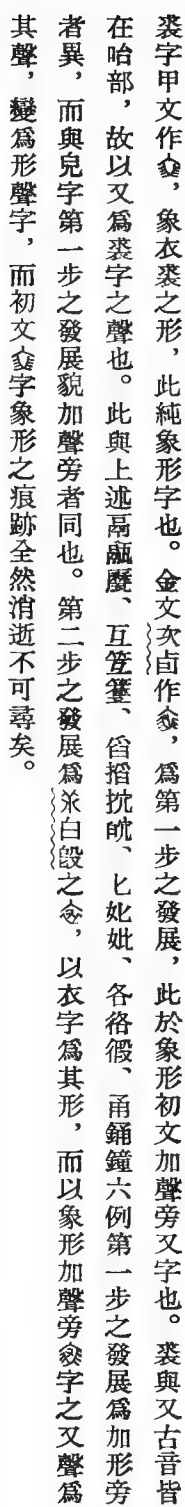 裘字甲文作，象衣裘之形，此純象形字也。金文次卣作，爲第一步之發展，此於象形初文加聲旁又字也。裘與又古音皆
在咍部，故以又爲裘字之聲也。此與上述鬲䰛䥶、互笠篗、臽掐抌眈、匕妣妣、各佫徦、甬鍾鐘六例第一步之發展爲加形旁
者異，而與皃字第一步之發展貌加聲旁者同也。第二步之發展爲㡭白𣪘之，以衣字爲其形，而以象形加聲旁字之又聲爲
其聲，變爲形聲字，而初文字象形之痕跡全然消逝不可尋矣。